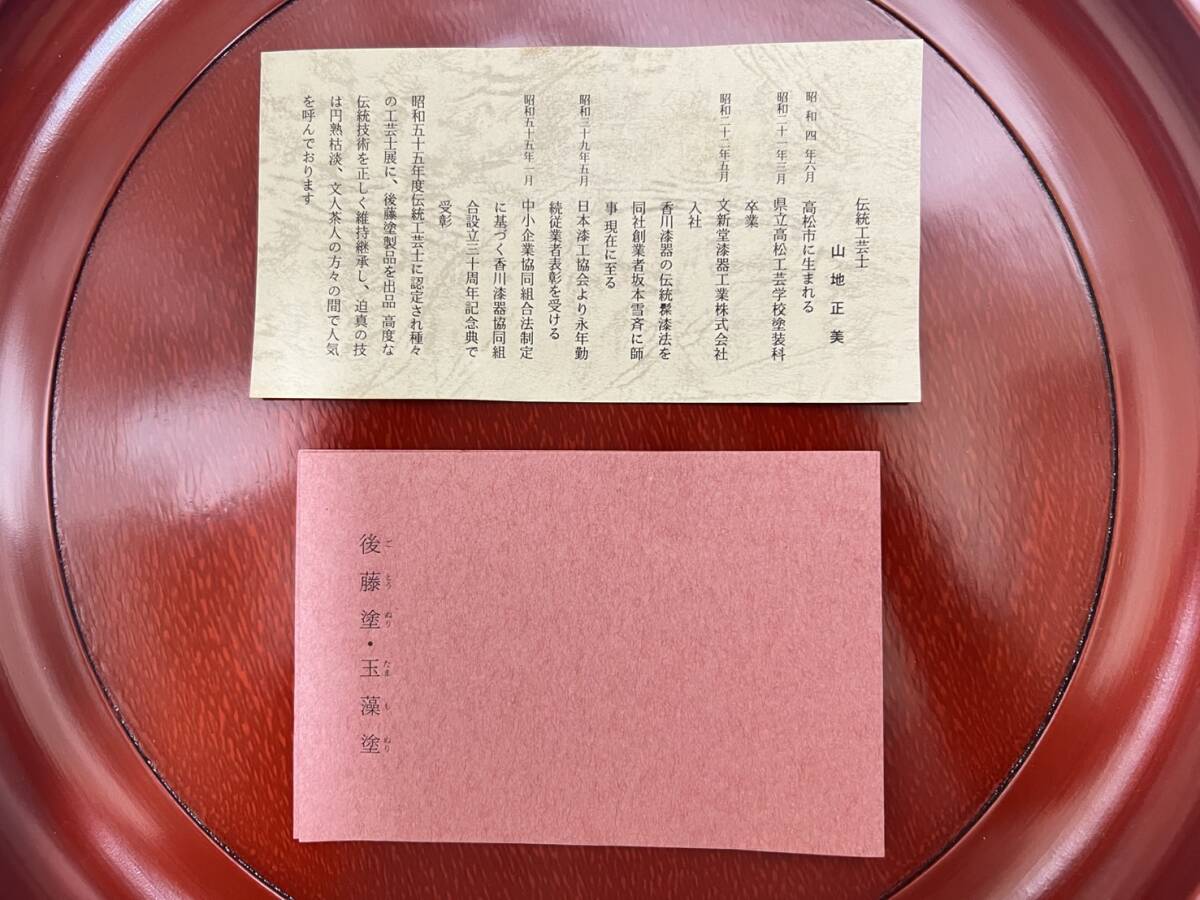 伝統工芸士
山地正美
昭和四年六月 高松市に生まれる
昭和二十一年三月 県立高松工芸学校塗装科
卒業
昭和二十二年五月 文新堂漆器工業株式会社
入社
香川漆器の伝統髹漆法を
同社創業者坂本雪斉に師
事 現在に至る
昭和三十九年五月 日本漆工協会より永年勤
続従業者表彰を受ける
昭和五十五年一月 中小企業協同組合法制定
に基づく香川漆器協同組
合設立三十周年記念典で
受彰
昭和五十五年度伝統工芸士に認定され種々
の工芸士展に、後藤塗製品を出品 高度な
伝統技術を正しく維持継承し、迫真の技
は円熟枯淡、文人茶人の方々の間で人気
を呼んでおります
後藤塗・玉藻塗
ごとうぬり たまもぬり